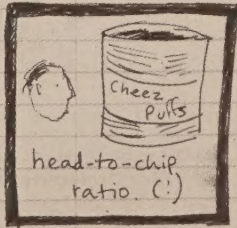 Cheez
Puffs
head-to-chip
ratio. (!)